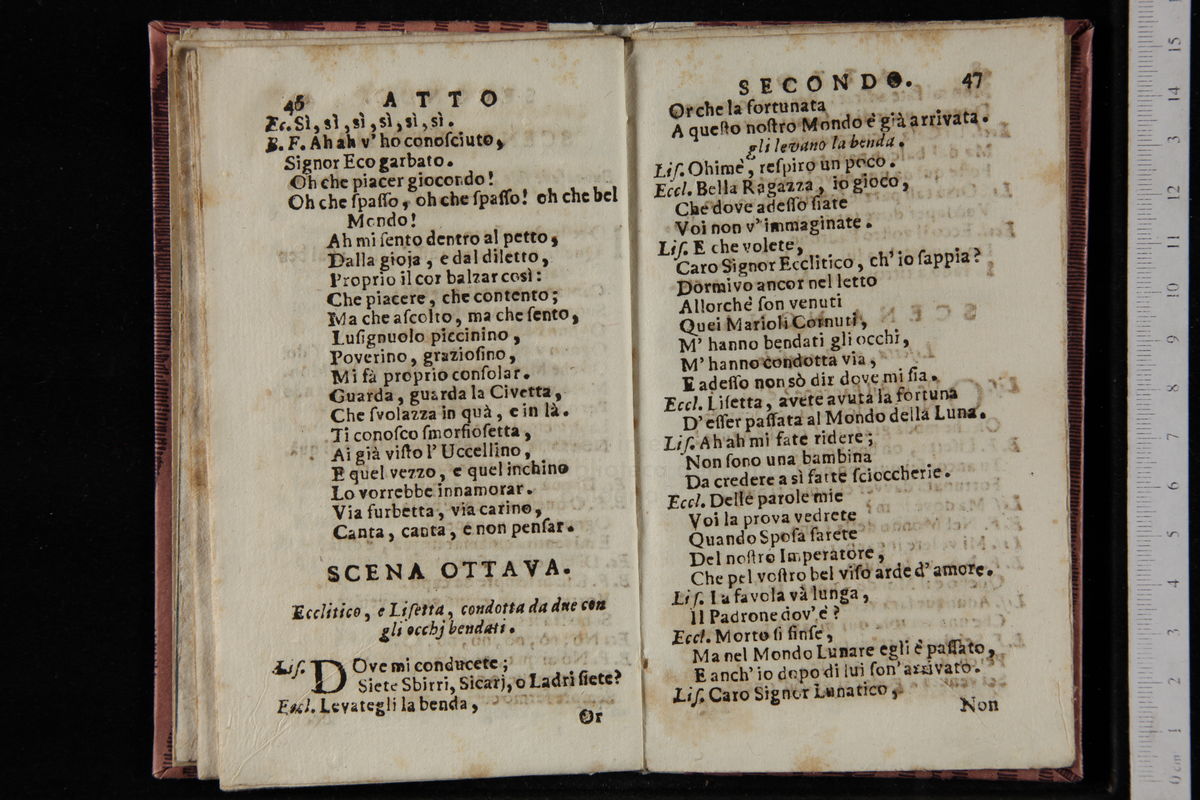 46 ATTO
Ec. Sì, sì, sì, sì, sì, sì.
B. F. Ah ah v' ho conoſciuto,
Signor Eco garbato.
Oh che piacer giocondo!
Oh che ſpaſſo, oh che ſpaſſo! oh che bel
Mondo!
Ah mi ſento dentro al petto,
Dalla gioja, e dal diletto,
Proprio il cor balzar così:
Che piacere, che contento;
Ma che aſcolto, ma che ſento,
Luſignuolo piccinino,
Poverino, grazioſino,
Mi fà proprio conſolar.
Guarda, guarda la Civetta,
Che ſvolazza in quà, e in là.
Ti conoſco ſmorfioſetta,
Ai già viſto l' Uccellino,
E quel vezzo, e quel inchino
Lo vorrebbe innamorar.
Via furbetta, via carino,
Canta, canta, e non penſar.
SCENA OTTAVA.
Ecclitico, e Liſetta, condotta da due con
gli occhj bendati.
Liſ. DOve mi conducete;
Siete Sbirri, Sicarj, o Ladri ſiete?
Eccl. Levategli la benda,
Or
SECONDO. 47
Or che la fortunata
A queſto noſtro Mondo è già arrivata.
gli levano la benda.
Liſ. Ohimè, reſpiro un poco.
Eccl. Bella Ragazza, io gioco,
Che dove adeſſo ſiate
Voi non v' immaginate.
Liſ. E che volete,
Caro Signor Ecclitico, ch' io ſappia?
Dormivo ancor nel letto
Allorchè ſon venuti
Quei Marioli Cornuti,
M' hanno bendati gli occhi,
M' hanno condotta via,
E adeſſo non sò dir dove mi ſia.
Eccl. Liſetta, avete avuta la fortuna
D' eſſer paſſata al Mondo della Luna.
Liſ. Ah ah mi fate ridere;
Non ſono una bambina
Da credere a sì fatte ſcioccherie.
Eccl. Delle parole mie
Voi la prova vedrete
Quando Spoſa ſarete
Del noſtro Imperatore,
Che pel voſtro bel viſo arde d' amore.
Liſ. La favola và lunga,
Il Padrone dov' è?
Eccl. Morto ſi finſe,
Ma nel Mondo Lunare egli è paſſato,
E anch' io dopo di lui ſon' arrivato.
Liſ. Caro Signor Lunatico,
Non